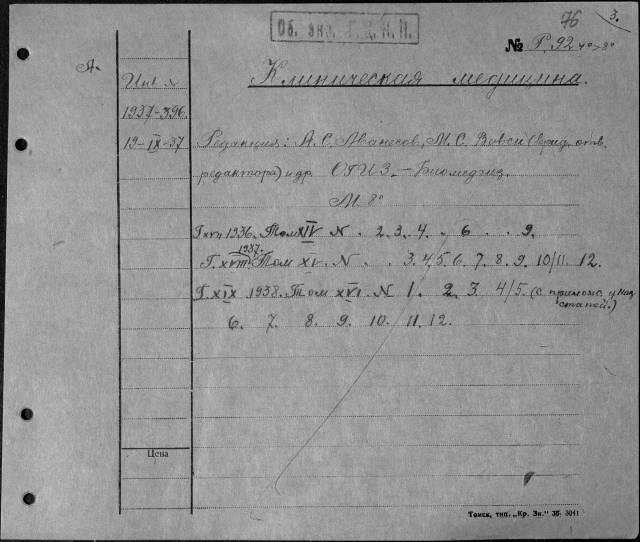 76 3.
Об. экз.
№ Р.92 4°>8°
А.
Клиническая медицина.
Инв. №
1937-396.
19-IX-37
Редакция: А. С. Аванесов, М. С. Вовси (врид. отв.
редактора) и др. ОГИЗ. – Биомедгиз.
М. 8°
Г. XVII 1936. Том XIV N. 2. 3. 4. 6. 9.
1937.
Г. XVIII. Том XV. N. 3. 4. 5. 6. 7. 8. 9. 10/11. 12.
Г. XIX. 1938. Том XVI. N 1. 2. 3. 4/5. (с прилож. указ
статей.)
6. 7. 8. 9. 10. 11. 12.
Цена
Томск, тип. „Кр. Зн." Зб. 3041